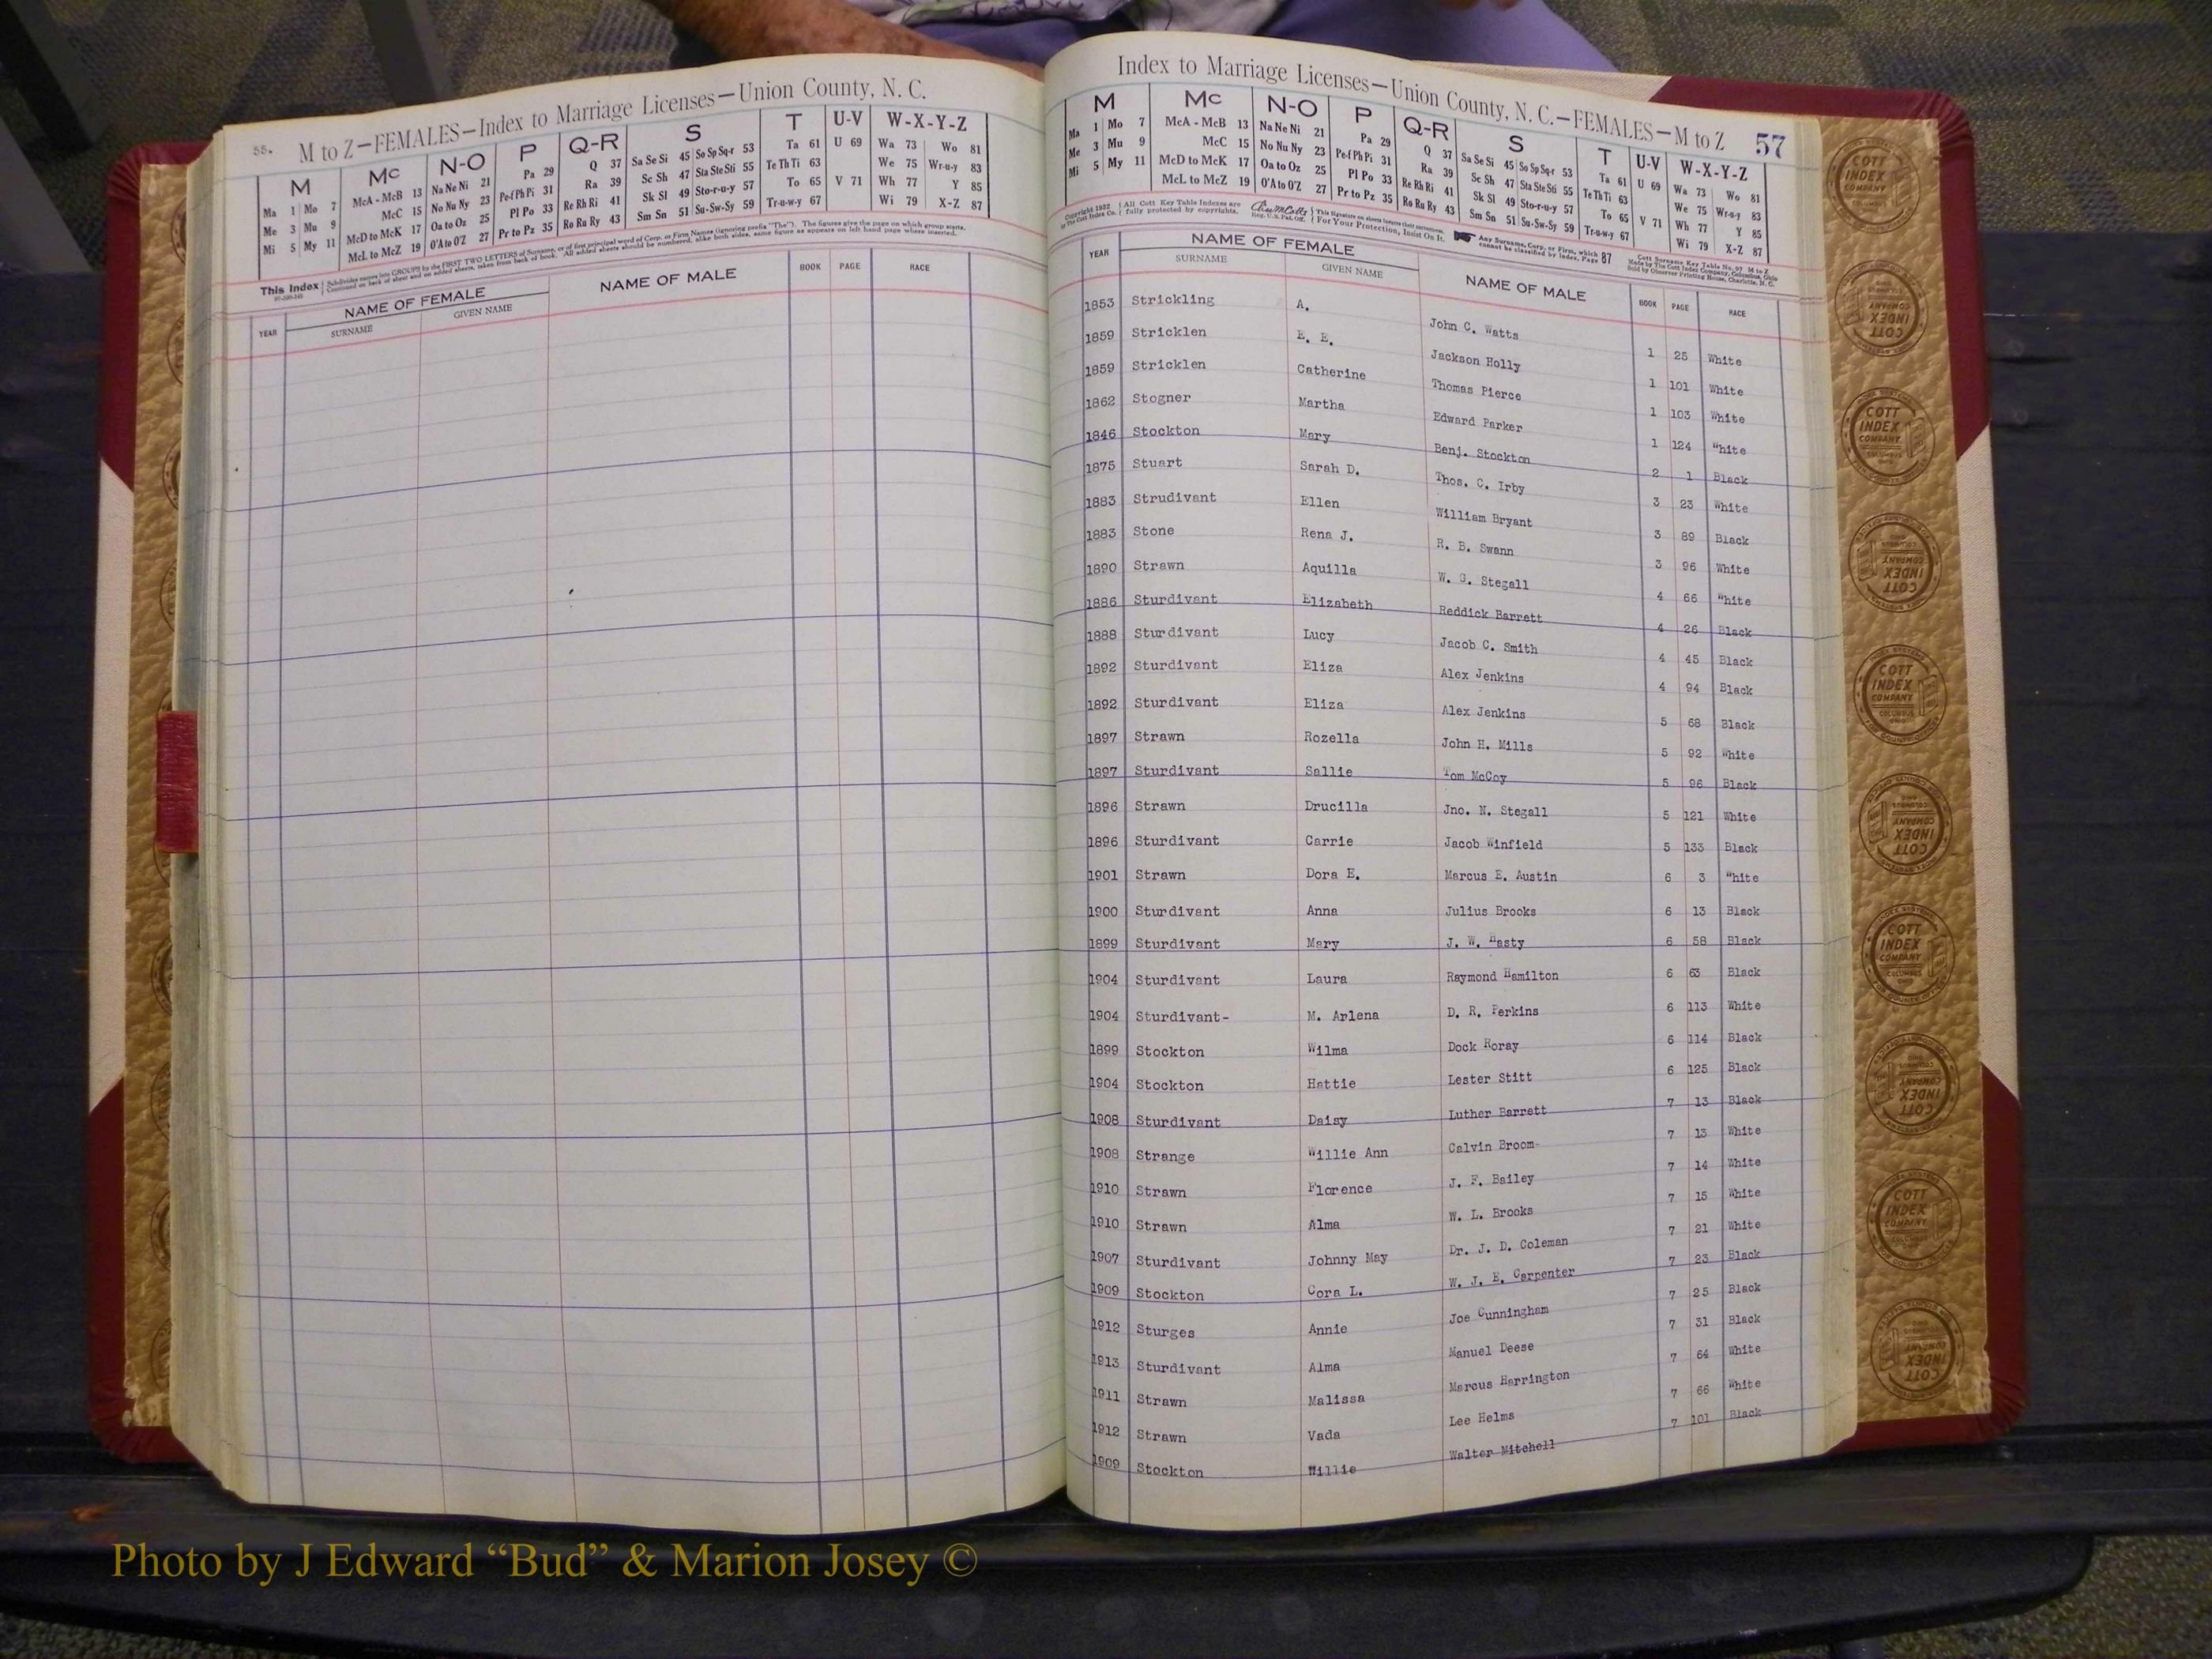 M to Z—FEMALES—Index to Marriage Licenses—Union County, N. C.
55.
M Mc N-O P Q-R S T U-V W-X-Y-Z
Ma 1 Mo 7 McA - McB 13 Na Ne Ni 21 Pa 29 Q 37 Sa Se Si 45 So Sp Sq-r 53 Ta 61 U 69 Wa 73 Wo 81
Me 3 Mu 9 McC 15 No Nu Ny 23 Pe-f Ph Pi 31 Ra 39 Sc Sh 47 Sta Ste Sti 55 Te Th Ti 63 We 75 Wr-u-y 83
Mi 5 My 11 McD to McK 17 Oa to Oz 25 Pl Po 33 Re Rh Ri 41 Sk Sl 49 Sto-r-u-y 57 To 65 V 71 Wh 77 Y 85
McL to McZ 19 O'A to O'Z 27 Pr to Pz 35 Ro Ru Ry 43 Sm Sn 51 Su-Sw-Sy 59 Tr-u-w-y 67 Wi 79 X-Z 87
This Index Subdivides names into GROUPS by the FIRST TWO LETTERS of Surname, or of first principal word of Corp. or Firm Names (ignoring prefix "The"). The figures give the page on which group starts.
Continued on back of sheet and on added sheets, taken from back of book. All added sheets should be numbered, alike both sides, same figure as appears on left hand page where inserted.
YEAR NAME OF FEMALE NAME OF MALE BOOK PAGE RACE
SURNAME GIVEN NAME
Index to Marriage Licenses—Union County, N. C.—FEMALES—M to Z 57
M Mc N-O P Q-R S T U-V W-X-Y-Z
Ma 1 Mo 7 McA - McB 13 Na Ne Ni 21 Pa 29 Q 37 Sa Se Si 45 So Sp Sq-r 53 Ta 61 U 69 Wa 73 Wo 81
Me 3 Mu 9 McC 15 No Nu Ny 23 Pe-f Ph Pi 31 Ra 39 Sc Sh 47 Sta Ste Sti 55 Te Th Ti 63 We 75 Wr-u-y 83
Mi 5 My 11 McD to McK 17 Oa to Oz 25 Pl Po 33 Re Rh Ri 41 Sk Sl 49 Sto-r-u-y 57 To 65 V 71 Wh 77 Y 85
McL to McZ 19 O'A to O'Z 27 Pr to Pz 35 Ro Ru Ry 43 Sm Sn 51 Su-Sw-Sy 59 Tr-u-w-y 67 Wi 79 X-Z 87
Copyright 1932 All Cott Key Table Indexes are This signature on sheets insures their sureness. Any Surname, Corp. or Firm, which Cott Surname Key Table No. 97 M to Z
The Cott Index Co. fully protected by copyrights. Reg. U.S. Pat. Off. For Your Protection, Insist On It. cannot be classified by Index, Page 87 Made by The Cott Index Company, Columbus, Ohio
Sold by Observer Printing House, Charlotte, N. C.
YEAR NAME OF FEMALE NAME OF MALE BOOK PAGE RACE
SURNAME GIVEN NAME
1853 Strickling A. John C. Watts 1 25 White
1859 Stricklen E. E. Jackson Holly 1 101 White
1859 Stricklen Catherine Thomas Pierce 1 103 White
1862 Stogner Martha Edward Parker 1 124 White
1846 Stockton Mary Benj. Stockton 2 1 Black
1875 Stuart Sarah D. Thos. C. Irby 3 23 White
1883 Strudivant Ellen William Bryant 3 89 Black
1883 Stone Rena J. R. B. Swann 3 96 White
1890 Strawn Aquilla W. G. Stegall 4 66 White
1886 Sturdivant Elizabeth Reddick Barrett 4 26 Black
1888 Sturdivant Lucy Jacob C. Smith 4 45 Black
1892 Sturdivant Eliza Alex Jenkins 4 94 Black
1892 Sturdivant Eliza Alex Jenkins 5 68 Black
1897 Strawn Rozella John H. Mills 5 92 White
1897 Sturdivant Sallie Tom McCoy 5 96 Black
1896 Strawn Drucilla Jno. N. Stegall 5 121 White
1896 Sturdivant Carrie Jacob Winfield 5 133 Black
1901 Strawn Dora E. Marcus E. Austin 6 3 White
1900 Sturdivant Anna Julius Brooks 6 13 Black
1899 Sturdivant Mary J. W. Hasty 6 58 Black
1904 Sturdivant Laura Raymond Hamilton 6 63 Black
1904 Sturdivant- M. Arlena D. R. Perkins 6 113 White
1899 Stockton Wilma Dock Roray 6 114 Black
1904 Stockton Hattie Lester Stitt 6 125 Black
1908 Sturdivant Daisy Luther Barrett 7 13 Black
1908 Strange Willie Ann Calvin Broom- 7 13 White
1910 Strawn Florence J. F. Bailey 7 14 White
1910 Strawn Alma W. L. Brooks 7 15 White
1907 Sturdivant Johnny May Dr. J. D. Coleman 7 21 White
1909 Stockton Cora L. W. J. E. Carpenter 7 23 Black
1912 Sturges Annie Joe Cunningham 7 25 Black
1913 Sturdivant Alma Manuel Deese 7 31 Black
1911 Strawn Malissa Marcus Harrington 7 64 White
1912 Strawn Vada Lee Helms 7 66 White
1909 Stockton Willie Walter Mitchell 7 101 Black
COTT INDEX COMPANY COLUMBUS OHIO
Photo by J Edward “Bud” & Marion Josey ©